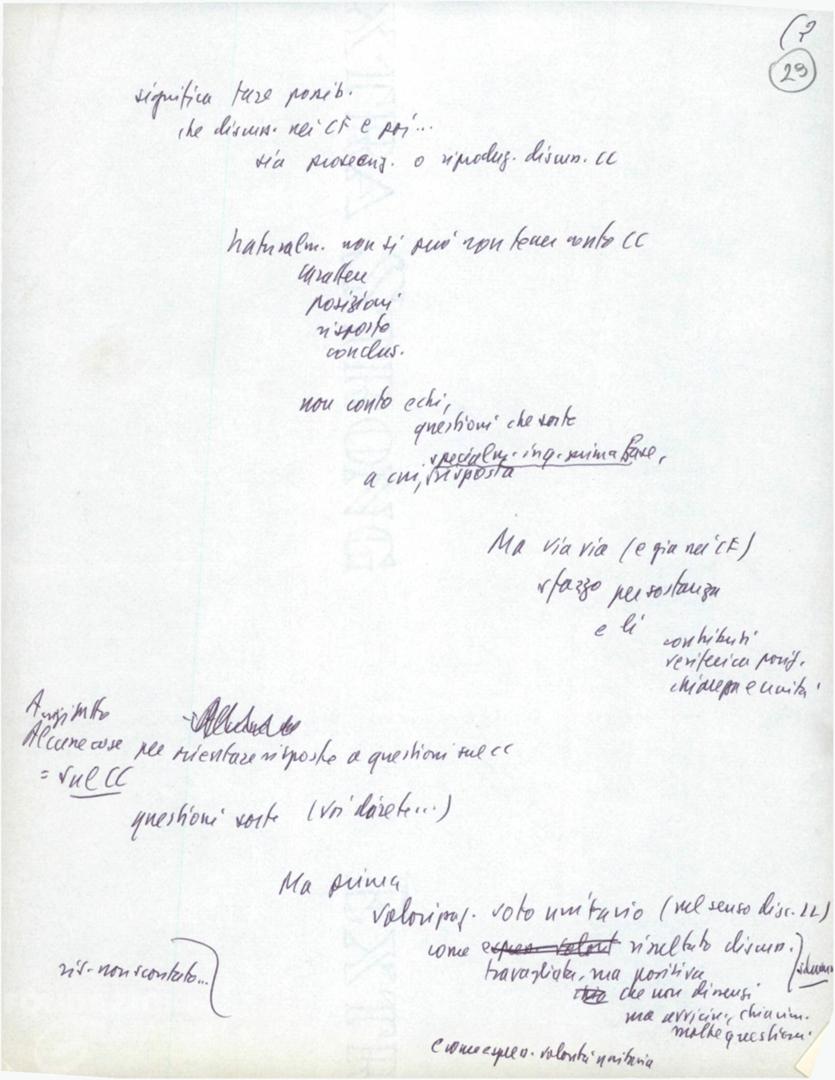 (2
29
significa fare possib.
che discuss. nei CF e poi...
sia prosecuz. o riproduz. discuss. CC
Naturalm. non si può non tener conto CC
carattere
posizioni
risposte
conclus.
non conto echi,
questioni che sorte
specialm. in q. prima fase,
a cui, risposta
Ma via via (e già nei CF)
sforzo per sostanza
e lì
contributi
verifica posiz.
chiarezza e unità
Anzitutto
Alcune cose per orientare risposte a questioni sul CC
= sul CC
questioni sorte (voi direte...)
Ma prima
valorizzaz. voto unitario (nel senso disc.
come risultato discuss.
travagliata, ma positiva
che non dimensi
ma avvicin., chiarim.
molte questioni
ris. non scontato...
e come espress. volontà unitaria